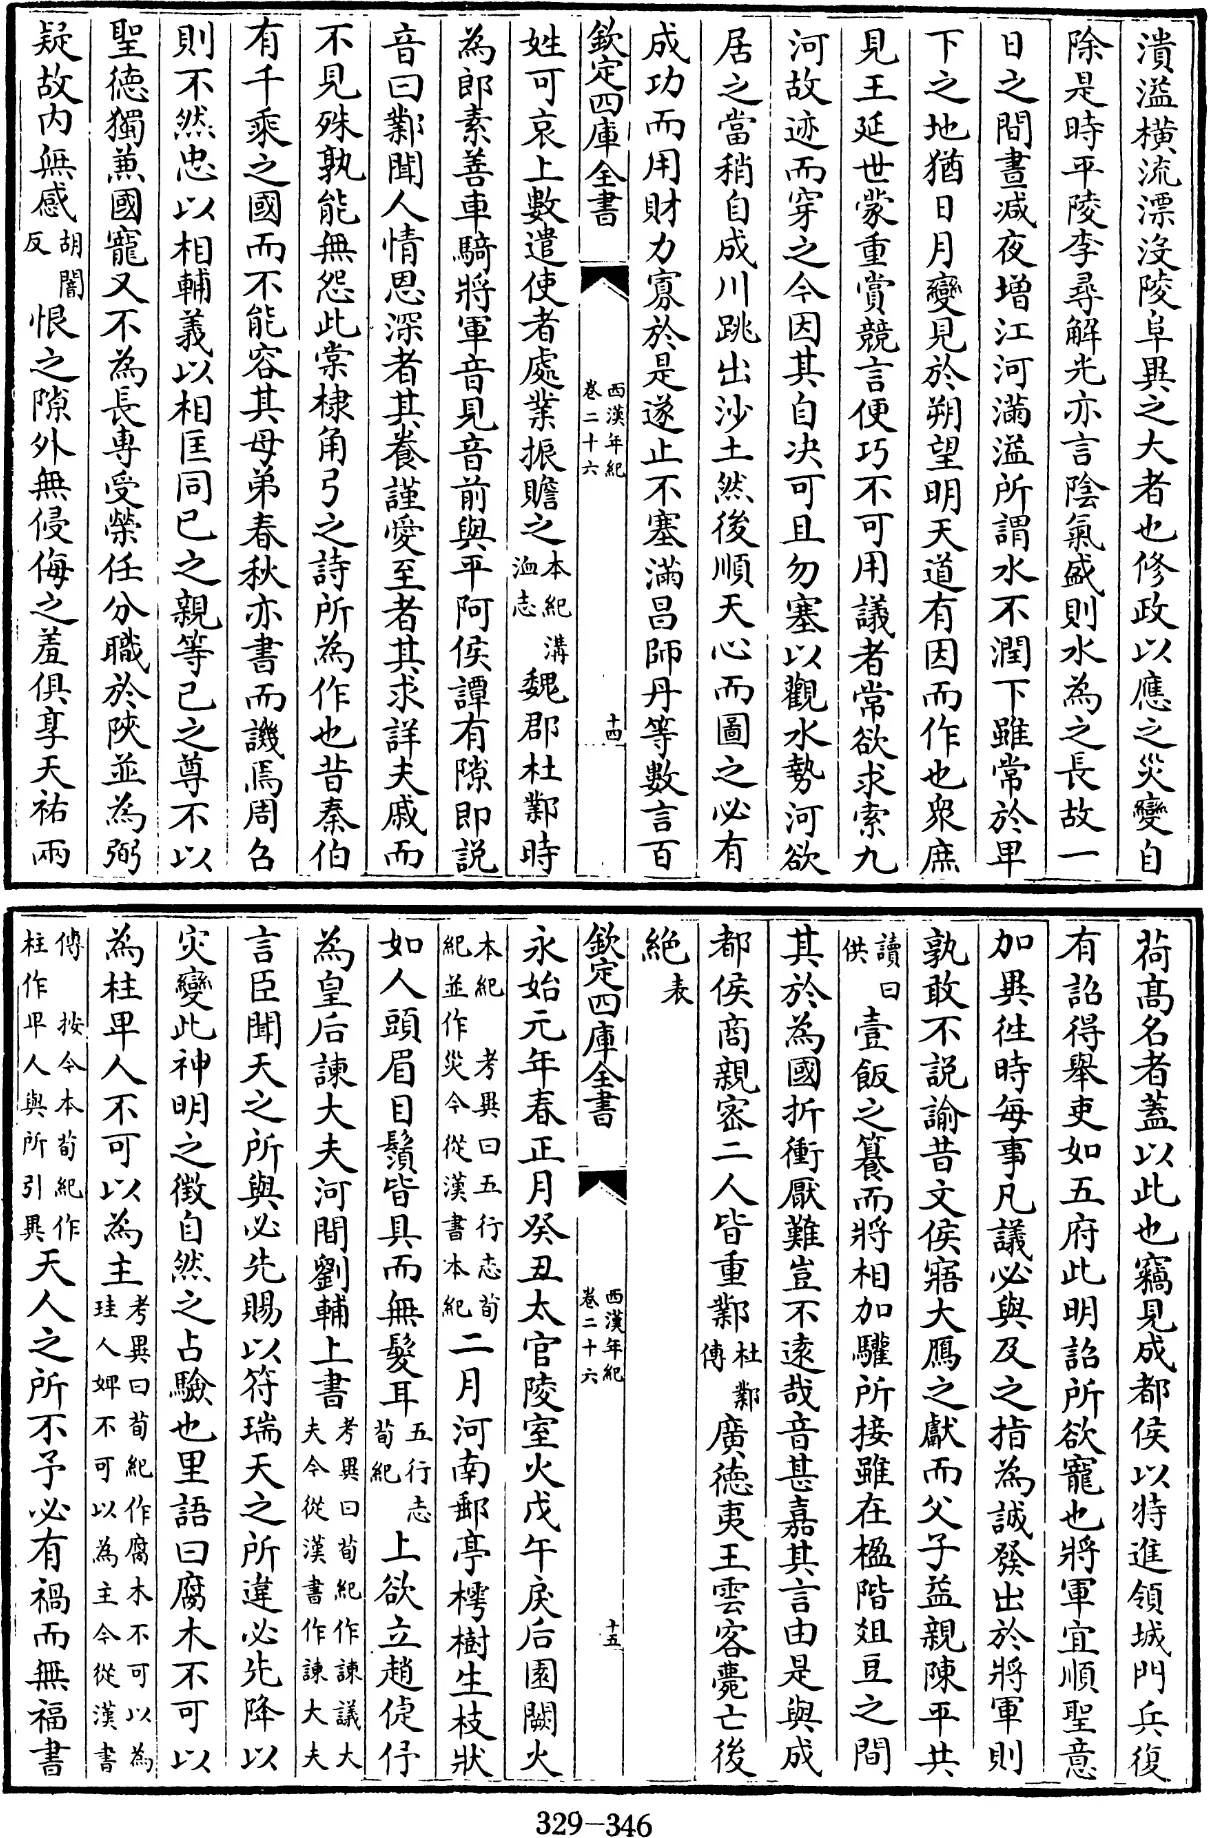 潰溢橫流漂沒陵阜異之大者也修政以應之災變自
除是時平陵李尋解光亦言陰氣盛則水為之長故一
日之間晝減夜增江河滿溢所謂水不潤下雖常於卑
下之地猶日月變見於朔望明天道有因而作也衆庶
見王延世蒙重賞競言便巧不可用議者常欲求索九
河故迹而穿之今因其自决可且勿塞以觀水勢河欲
居之當稍自成川跳出沙土然後順天心而圖之必有
成功而用財力寡於是遂止不塞滿昌師丹等數言百
欽定四庫全書
西漢年紀
卷二十六
十四
姓可哀上數遣使者處業振贍之本紀溝洫志魏郡杜鄴時
為郎素善車騎將軍音見音前與平阿侯譚有隙即說
音曰鄴聞人情恩深者其養謹愛至者其求詳夫戚而
不見殊孰能無怨此棠棣角弓之詩所為作也昔秦伯
有千乘之國而不能容其母弟春秋亦書而譏焉周召
則不然忠以相輔義以相匡同已之親等已之尊不以
聖德獨兼國寵又不為長專受榮任分職於陝並為弼
疑故内無感胡闇反恨之隙外無侵侮之羞俱享天祐兩
荷高名者蓋以此也竊見成都侯以特進領城門兵復
有詔得舉吏如五府此明詔所欲寵也將軍宜順聖意
加異徃時每事凡議必與及之指為誠發出於將軍則
孰敢不說諭昔文侯寤大鴈之獻而父子益親陳平共
讀曰供壹飯之籑而將相加驩所接雖在楹階俎豆之間
其於為國折衝厭難豈不遠哉音甚嘉其言由是與成
都侯商親宻二人皆重鄴杜鄴傳廣德夷王雲客薨亡後
絶表
欽定四庫全書
西漢年紀
卷二十六
十五
永始元年春正月癸丑太官陵室火戊午戾后園闕火
本紀考異曰五行志荀紀並作災今從漢書本紀二月河南郵亭樗樹生枝狀
如人頭眉目鬚皆具而無髮耳五行志荀紀上欲立趙倢伃
為皇后諫大夫河間劉輔上書考異曰荀紀作諫議大夫今從漢書作諫大夫
言臣聞天之所與必先賜以符瑞天之所違必先降以
災變此神明之徵自然之占驗也里語曰腐木不可以
為柱卑人不可以為主考異曰荀紀作腐木不可以為珪人婢不可以為主今從漢書
傳按今本荀紀作柱作卑人與所引異天人之所不予必有禍而無福書
329-346